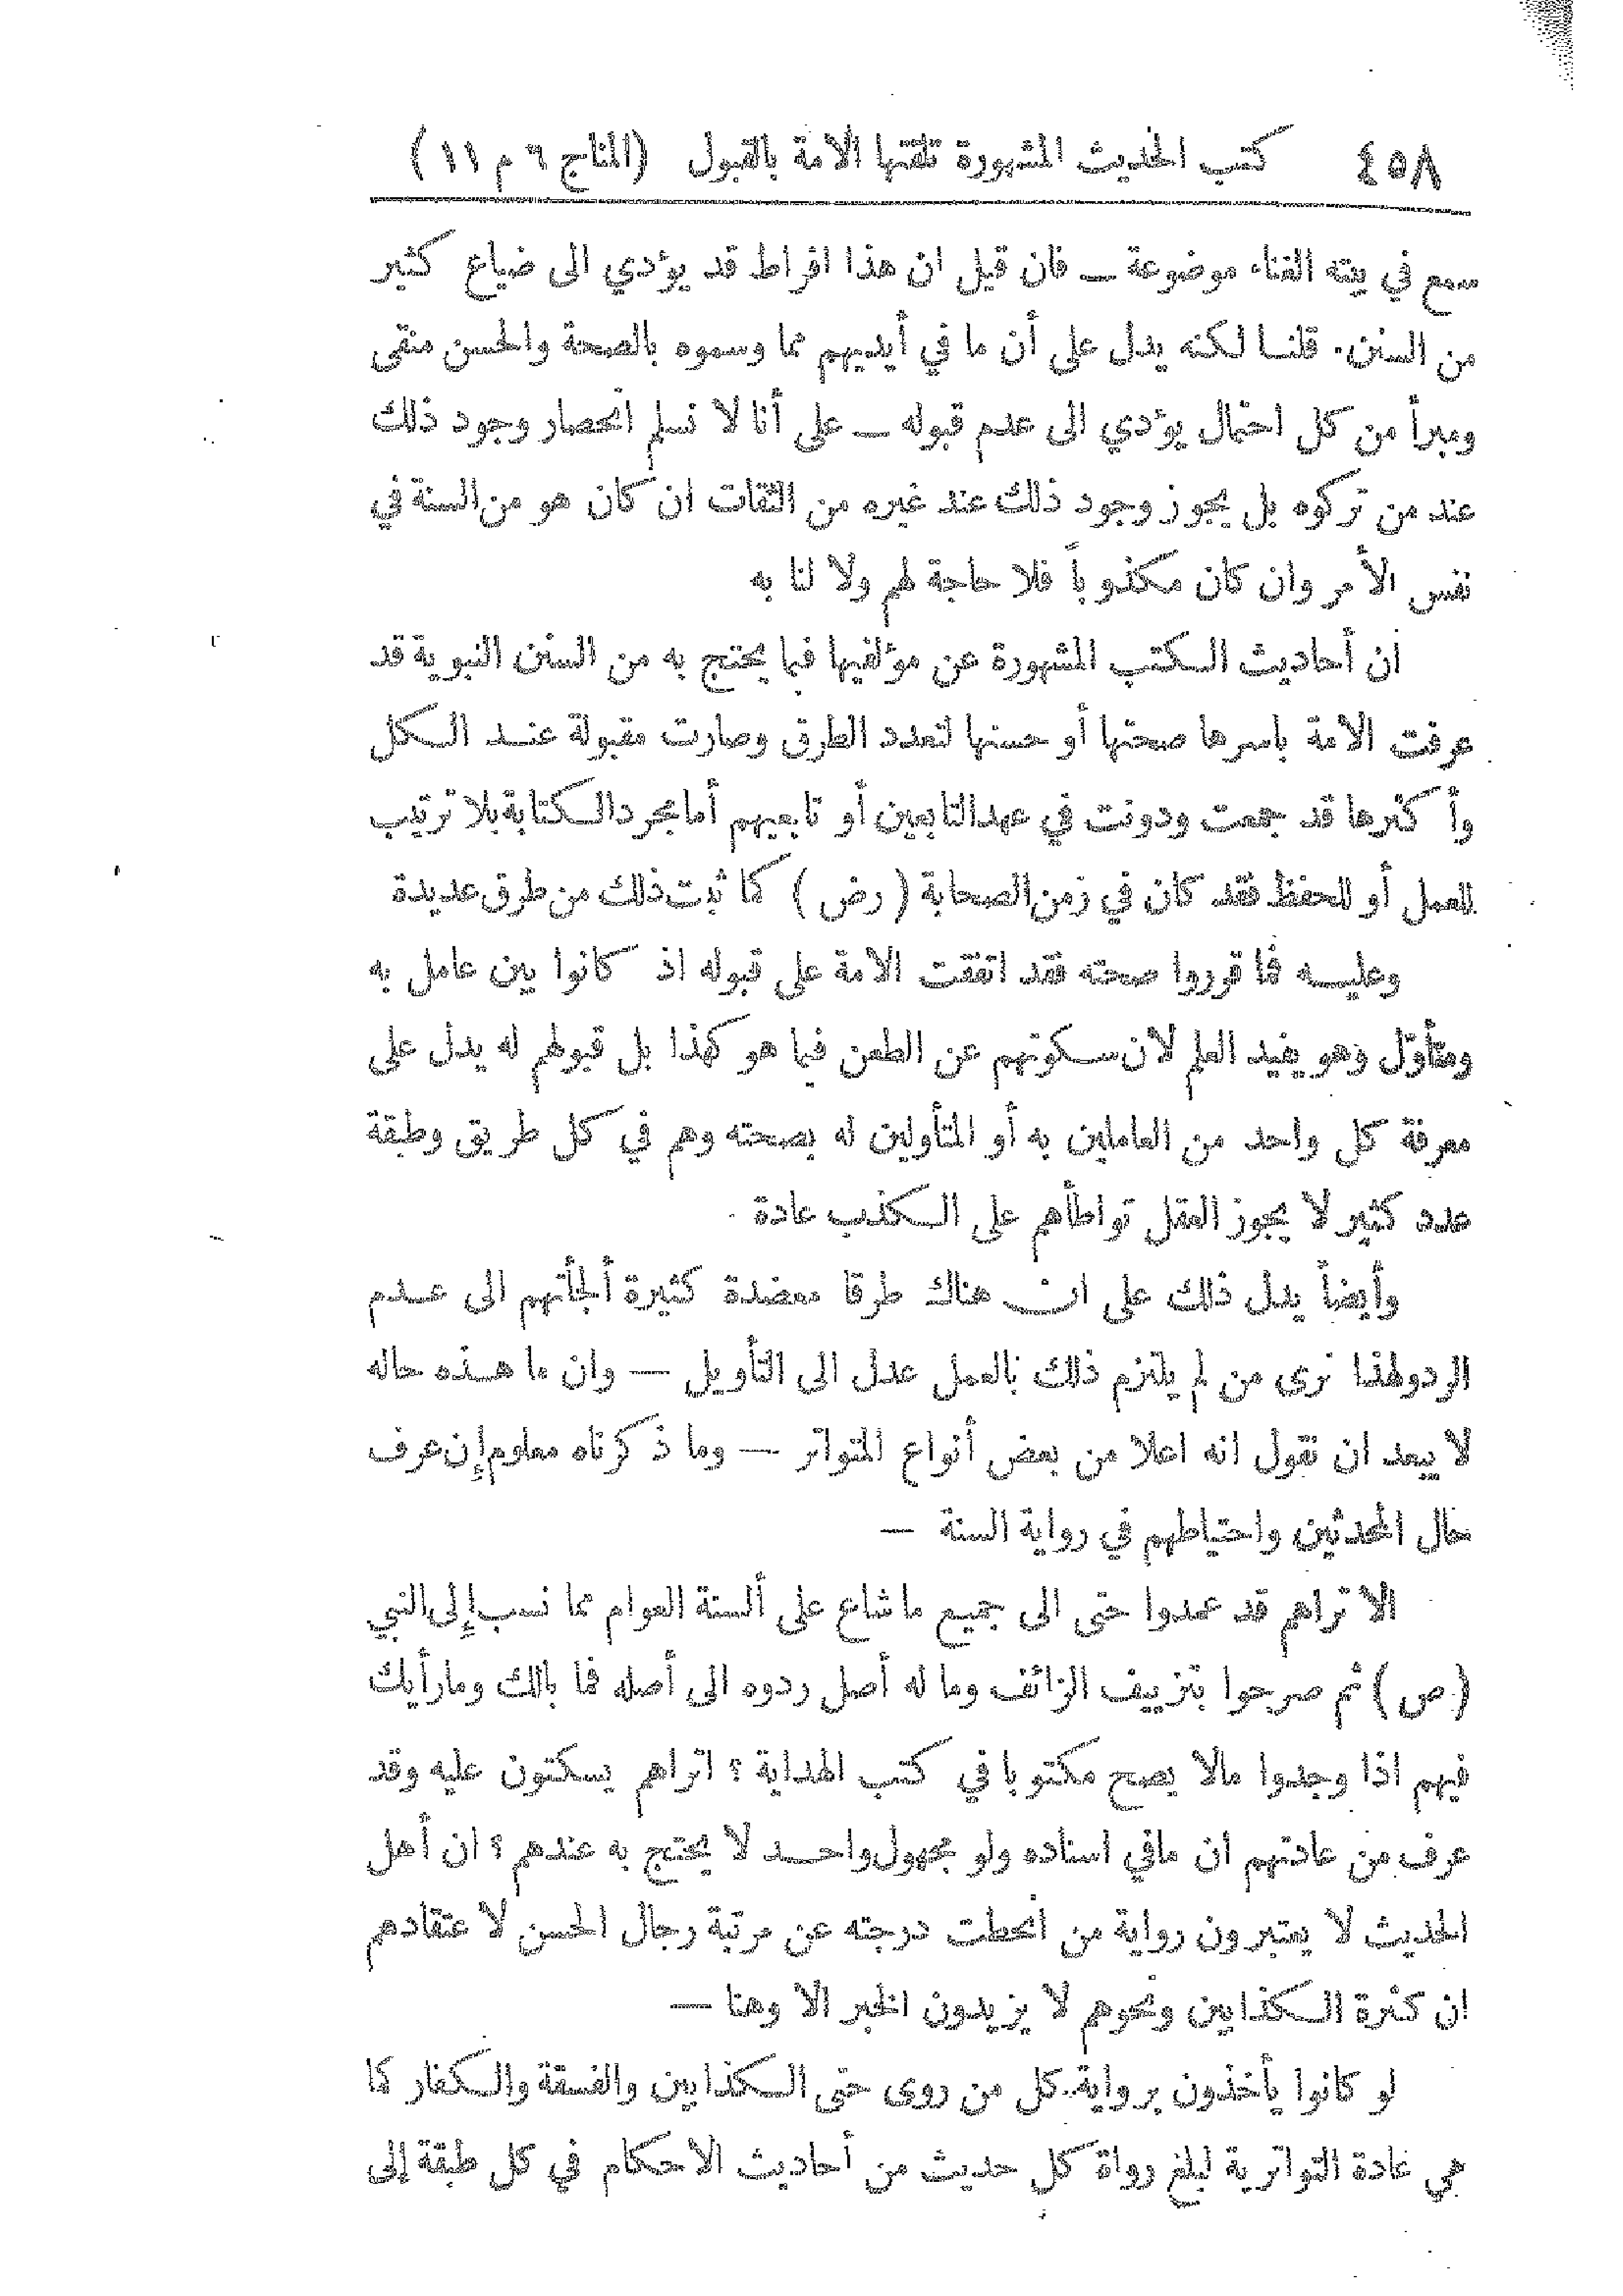 ٤٥٨ كتب الحديث المشهورة تلقتها الامة بالقبول (المناج ٦ م ١١)
سمع في بيته الغناء موضوعة — فان قيل ان هذا افراط قد يؤدي الى ضياع كثير
من السنن. قلنا لكنه يدل على أن ما في أيديهم مما وسموه بالصحة والحسن منقى
ومبرأ من كل احتمال يؤدي الى عدم قبوله — على أنا لا نسلم انحصار وجود ذلك
عند من تركوه بل يجوز وجود ذلك عند غيره من الثقات ان كان هو من السنة في
نفس الأمر وان كان مكذوباً فلا حاجة لهم ولا لنا به
ان أحاديث الكتب المشهورة عن مؤلفيها فيما يحتج به من السنن النبوية قد
عرفت الامة باسرها صحتها أو حسنها لتعدد الطرق وصارت مقبولة عند الكل
وأكثرها قد جمعت ودونت في عهد التابعين أو تابعيهم أما مجرد الكتابة بلا ترتيب
للعمل أو للحفظ فقد كان في زمن الصحابة (رض) كما ثبت ذلك من طرق عديدة
وعليه فما قرروا صحته فقد اتفقت الامة على قبوله اذ كانوا بين عامل به
ومتأوّل وهو يفيد العلم لان سكوتهم عن الطعن فيما هو كهذا بل قبولهم له يدل على
معرفة كل واحد من العاملين به أو المتأولين له بصحته وهم في كل طريق وطبقة
عدد كثير لا يجوز العقل تواطأهم على الكذب عادة
وأيضاً يدل ذلك على ان هناك طرقا معضدة كثيرة ألجأتهم الى عدم
الرد ولهذا نرى من لم يلتزم ذلك بالعمل عدل الى التأويل — وان ما هذه حاله
لا يبعد ان نقول انه اعلا من بعض أنواع المتواتر — وما ذكرناه معلوم إن عرف
حال المحدثين واحتياطهم في رواية السنة —
الا تراهم قد عمدوا حتى الى جميع ما شاع على ألسنة العوام مما نسب إلى النبي
(ص) ثم صرحوا بتزييف الزائف وما له أصل ردوه الى أصله فما بالك وما رأيك
فيهم اذا وجدوا مالا يصح مكتوبا في كتب الهداية؟ اتراهم يسكتون عليه وقد
عرف من عادتهم ان مافي اسناده ولو مجهول واحد لا يحتج به عندهم؟ ان أهل
الحديث لا يعتبرون رواية من انحطت درجته عن مرتبة رجال الحسن لاعتقادهم
ان كثرة الكذابين ونحوهم لا يزيدون الخبر الا وهنا —
لو كانوا يأخذون برواية كل من روى حتى الكذابين والفسقة والكفار كما
هي عادة التواترية لبلغ رواة كل حديث من أحاديث الاحكام في كل طبقة إلى